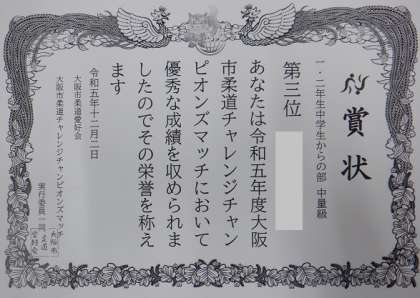 賞状
一・二年生中学生からの部 中量級
第三位
あなたは令和五年度大阪
市柔道チャレンジチャン
ピオンズマッチにおいて
優秀な成績を収められま
したのでその栄誉を称え
ます
令和五年十二月二日
大阪市柔道愛好会
大阪市柔道チャレンジチャンピオンズマッチ
実行委員一同